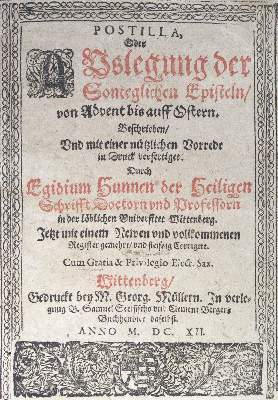 POSTILLA,
Oder
Auslegung der
Sonteglichen Episteln/
von Advent bis auff Ostern.
Beschrieben/
Und mit einer nützlichen Vorrede
in Druck verfertiget.
Durch
Egidium Hunnen der Heiligen
Schrifft Doctorn vnd Professorn
in der löblichen Universitet Wittenberg.
Jetzt mit einem Newen und vollkommenen
Register gemehret/ und fleissig Corrigirt.
Cum Gratia & Privilegio Elect. Sax.
Wittenberg/
Gedruckt bey M. Georg. Müllern. In verle-
gung Samuel und Clement Bergers
Buchhendler daselbst.
ANNO M. DC. XII.